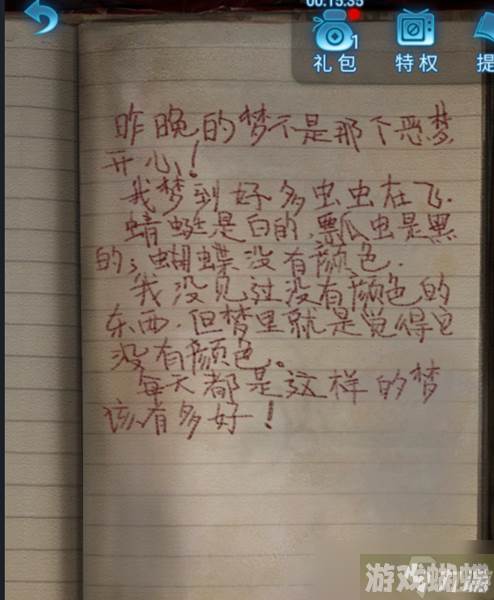 00:15:35
1
礼包
特权
提
昨晚的梦不是那个恶梦
开心!
我梦到好多虫虫在飞.
蜻蜓是白的,瓢虫是黑
的;蝴蝶没有颜色.
我没见过没有颜色的
东西.但梦里就是觉得它
没有颜色。
每天都是这样的梦
该有多好!
游戏蝴蝶